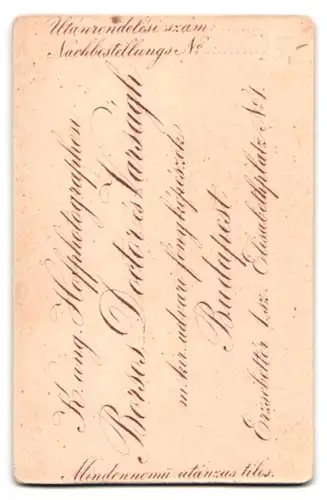 Utánrendelési szám
Nachbestellungs No
K. ung. Hofphotographen
Borsos, Doctor és Varságh
m. kir. udvari fényképészek
Budapest
Erzsébettér 1. sz. Elisabethplatz No 1.
Mindennemü utánzás tilos.